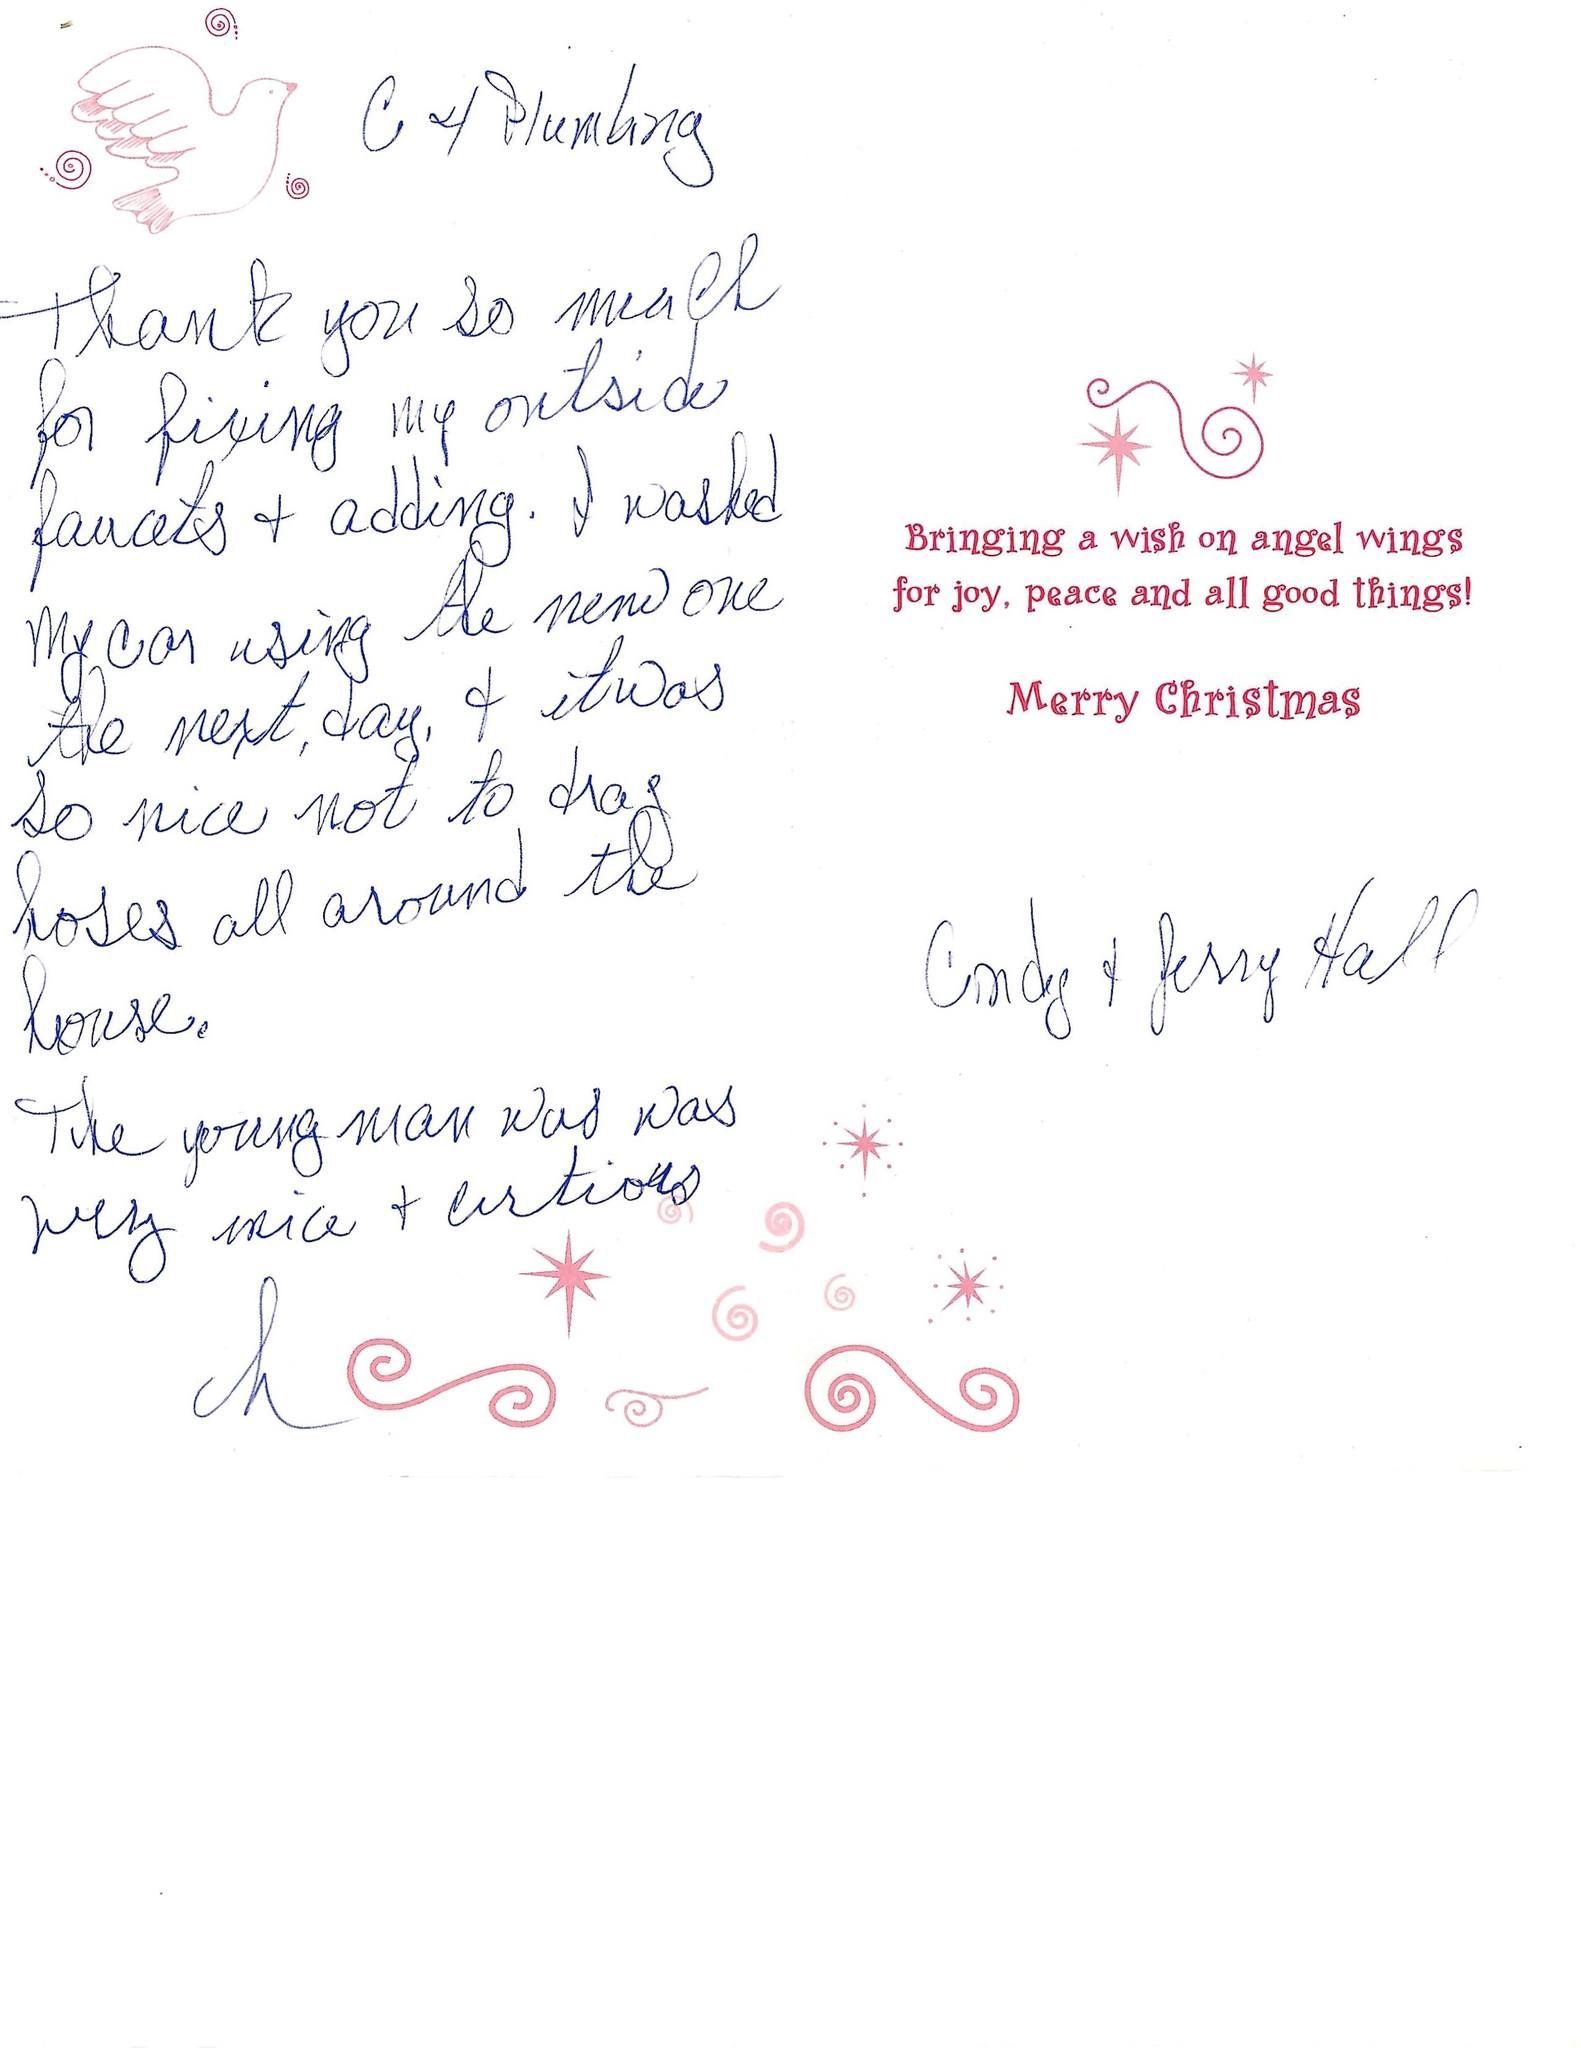 C & Plumbing
Thank you so much
for fixing my outside
faucets + adding. I washed
my car using the new one
the next, day, & it was
so nice not to drag
hoses all around the
house.
The young man was was
very nice +
Bringing a wish on angel wings
for joy, peace and all good things!
Merry Christmas
Cindy & Jerry Hall